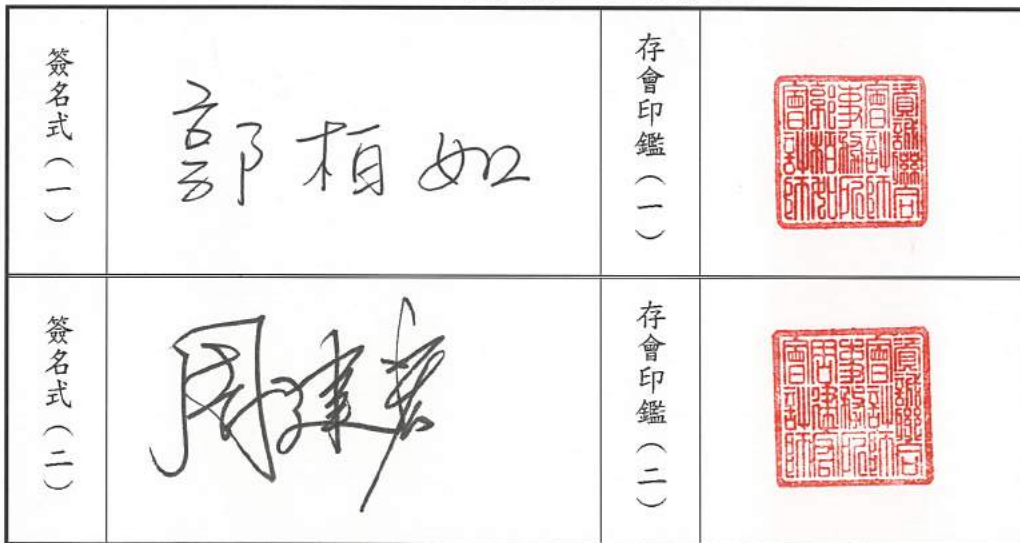 簽名式(一)
郭柏如
存會印鑑(一)
資誠聯合
會計師
事務所
郭柏如
會計師
簽名式(二)
周建宏
存會印鑑(二)
資誠聯合
會計師
事務所
周建宏
會計師